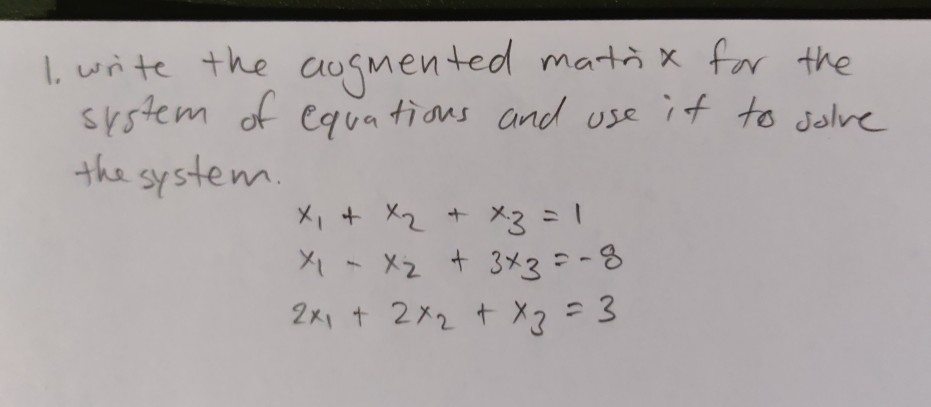 1. write the augmented matrix for the
system of equations and use it to solve
the system.
x₁ + x₂ + x₃ = 1
x₁ - x₂ + 3x₃ = -8
2x₁ + 2x₂ + x₃ = 3